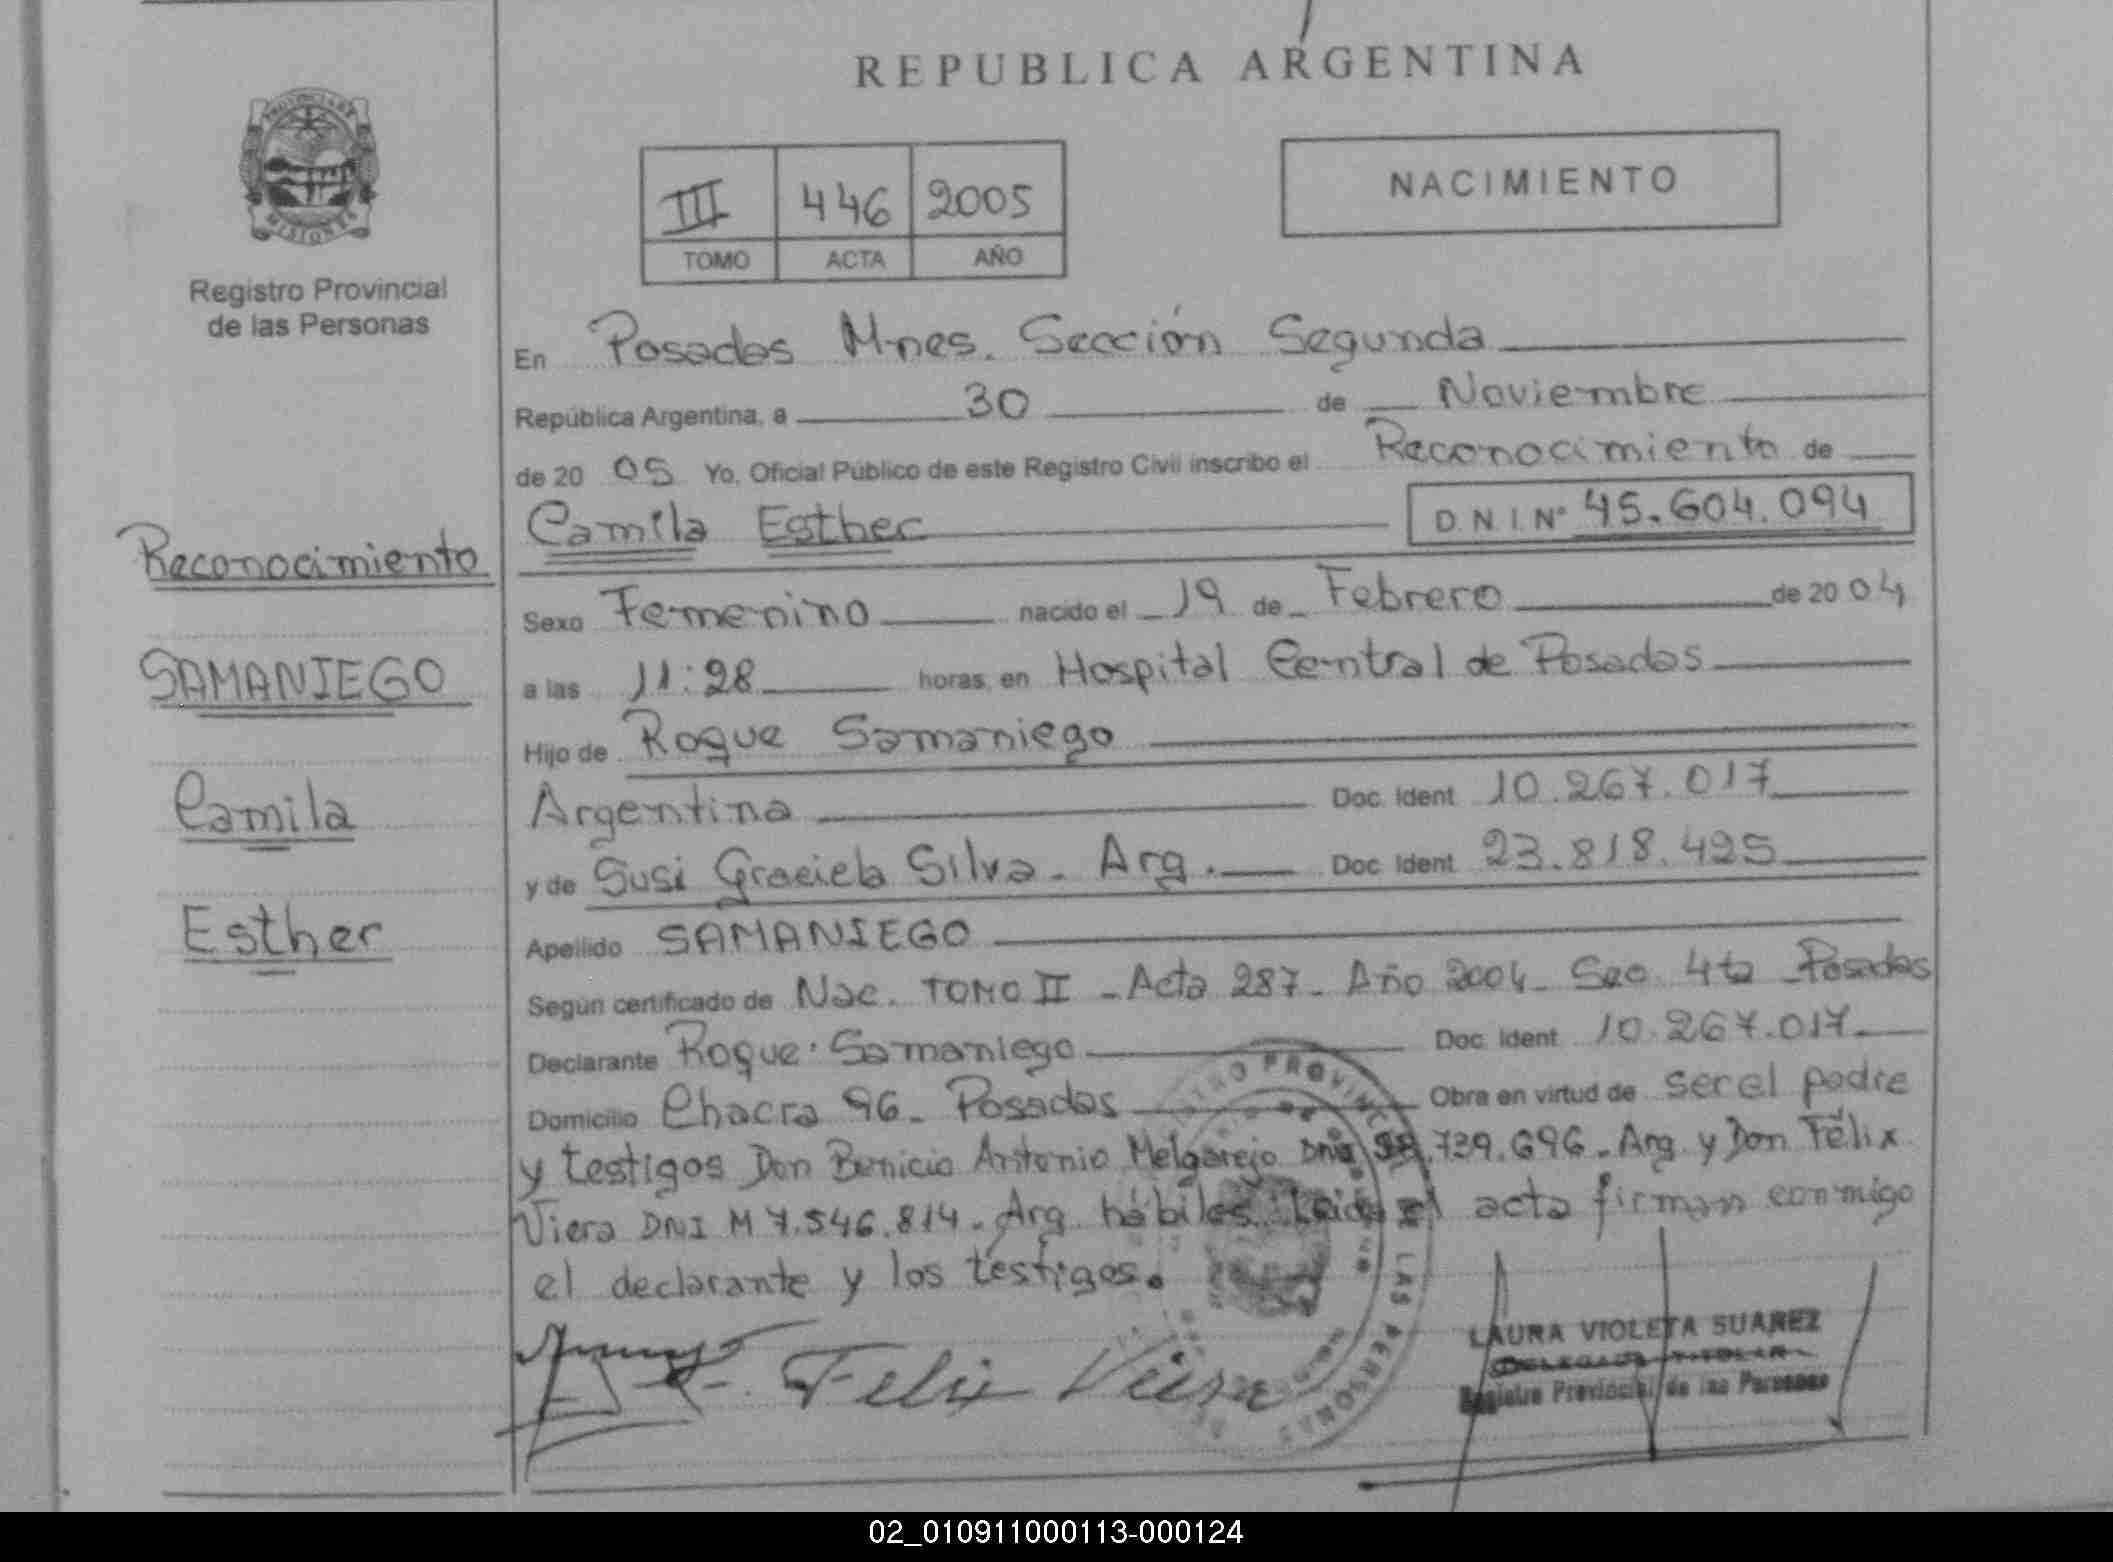 REPUBLICA ARGENTINA
PROVINCIA DE
MISIONES
Registro Provincial
de las Personas
III 446 2005
TOMO ACTA AÑO
NACIMIENTO
En Posadas Mnes. Sección Segunda
República Argentina, a 30 de Noviembre
de 20 05 Yo, Oficial Público de este Registro Civil inscribo el Reconocimiento de
Camila Esther D.N.I.Nº 45.604.094
Sexo Femenino nacido el 19 de Febrero de 20 04
a las 11:28 horas, en Hospital Central de Posadas
Hijo de Roque Samaniego
Argentina Doc. Ident 10.267.017
y de Susi Graciela Silva - Arg. Doc. Ident. 23.818.425
Apellido SAMANIEGO
Según certificado de Nac. TOMO II - Acta 287 - Año 2004 - Sec. 4ta - Posadas
Declarante Roque Samaniego Doc. Ident 10.267.017
Domicilio Chacra 96 - Posadas Obra en virtud de ser el padre
y testigos Don Benicio Antonio Melgarejo DNI .739.696 - Arg. y Don Félix
Viera DNI M 7.546.814 - Arg. hábiles. Leida el acta firman conmigo
el declarante y los testigos.
Reconocimiento
SAMANIEGO
Camila
Esther
Felix Viera
REGISTRO PROVINCIAL DE LAS PERSONAS
LAURA VIOLETA SUAREZ
DELEGADA TITULAR
Registro Provincial de las Personas
02_010911000113-000124